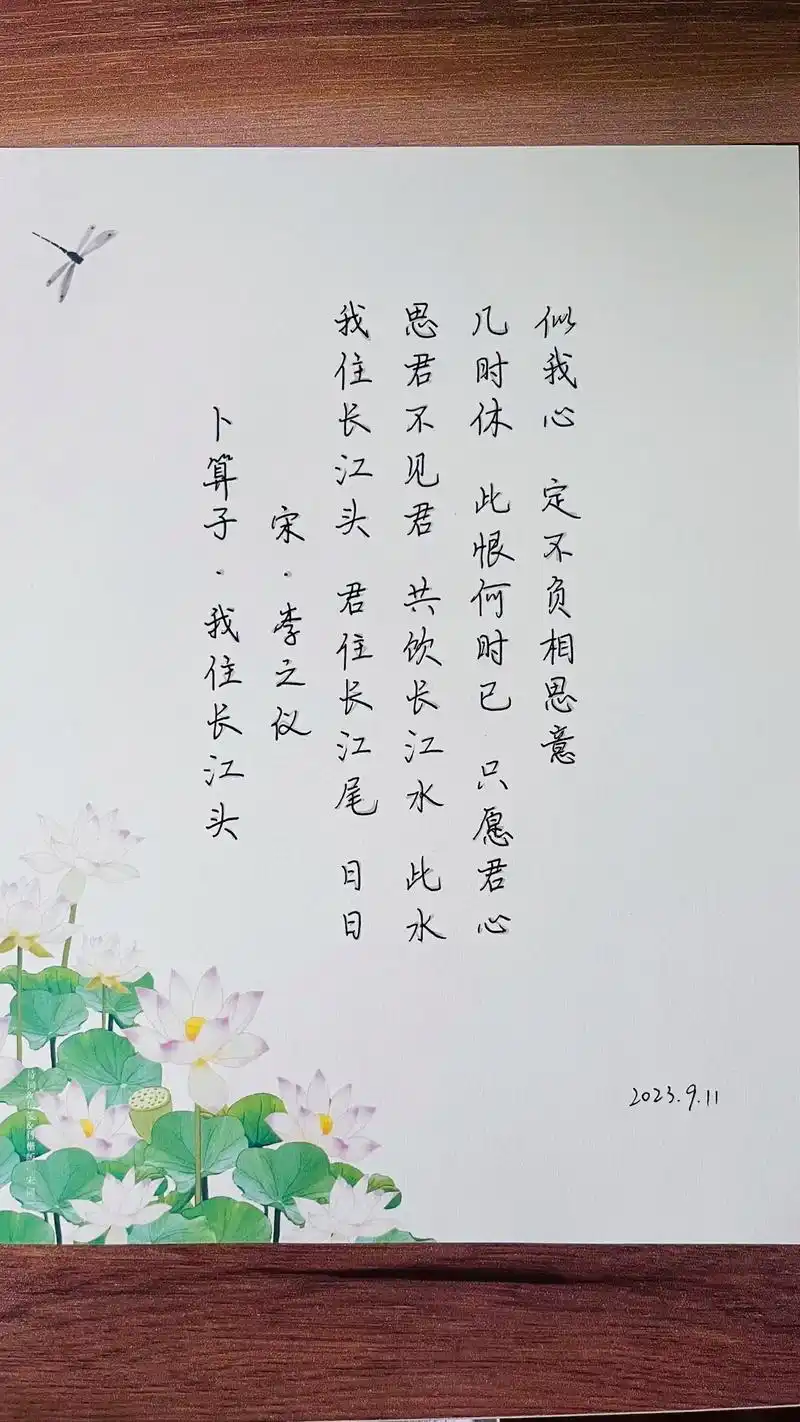 卜算子·我住长江头
宋·李之仪
我住长江头 君住长江尾 日日
思君不见君 共饮长江水 此水
几时休 此恨何时已 只愿君心
似我心 定不负相思意
2023.9.11